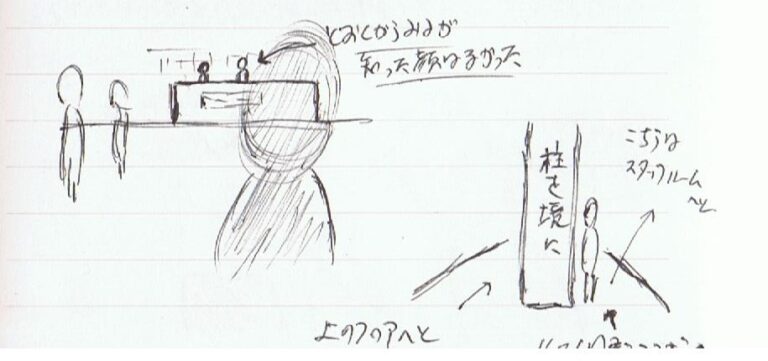 とおくからみるが
知った顔はなかった
柱を境に
こちらは
スタッフルーム
へと
上のフロアへと